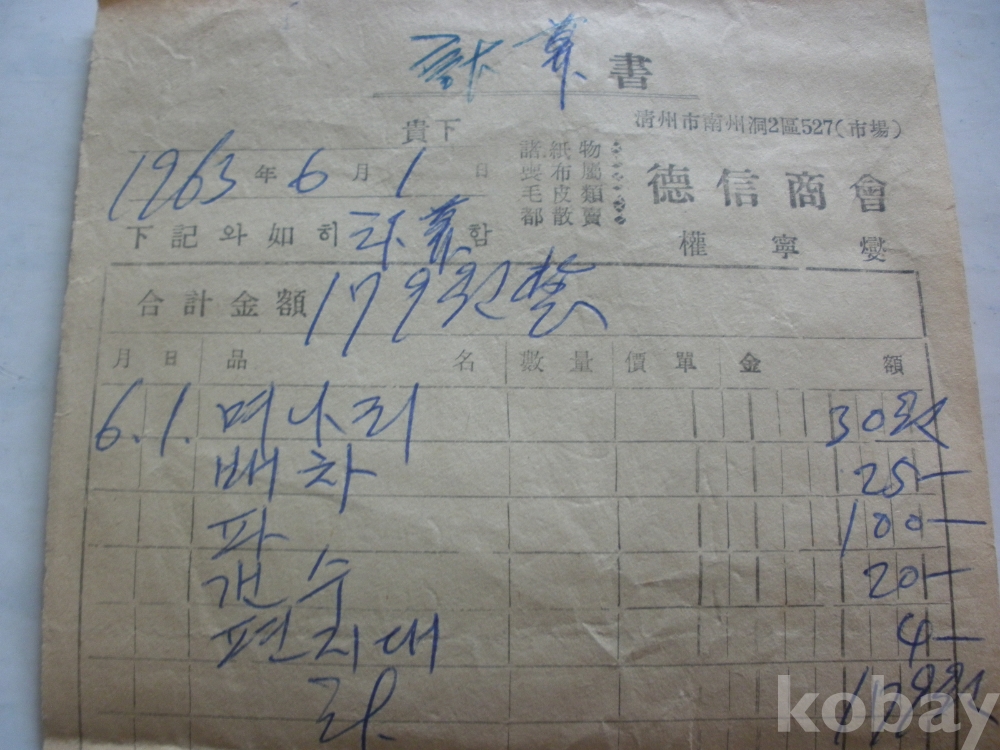 計算書
貴下
清州市南州洞2區527(市場)
1963年 6月 1日
諸紙物
喪布屬
毛皮類
都散賣
德信商會
權寧燮
下記와如히 計算 함
合計金額 179원整
月 日 品 名 數量 價單 金 額
6.1. 며나리 30원
배차 25—
파 100—
건수 20—
편지대 4—
計. 179원
kobay